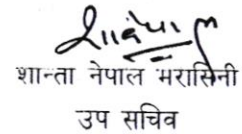 शान्ता नेपाल मरासिनी
उप सचिव